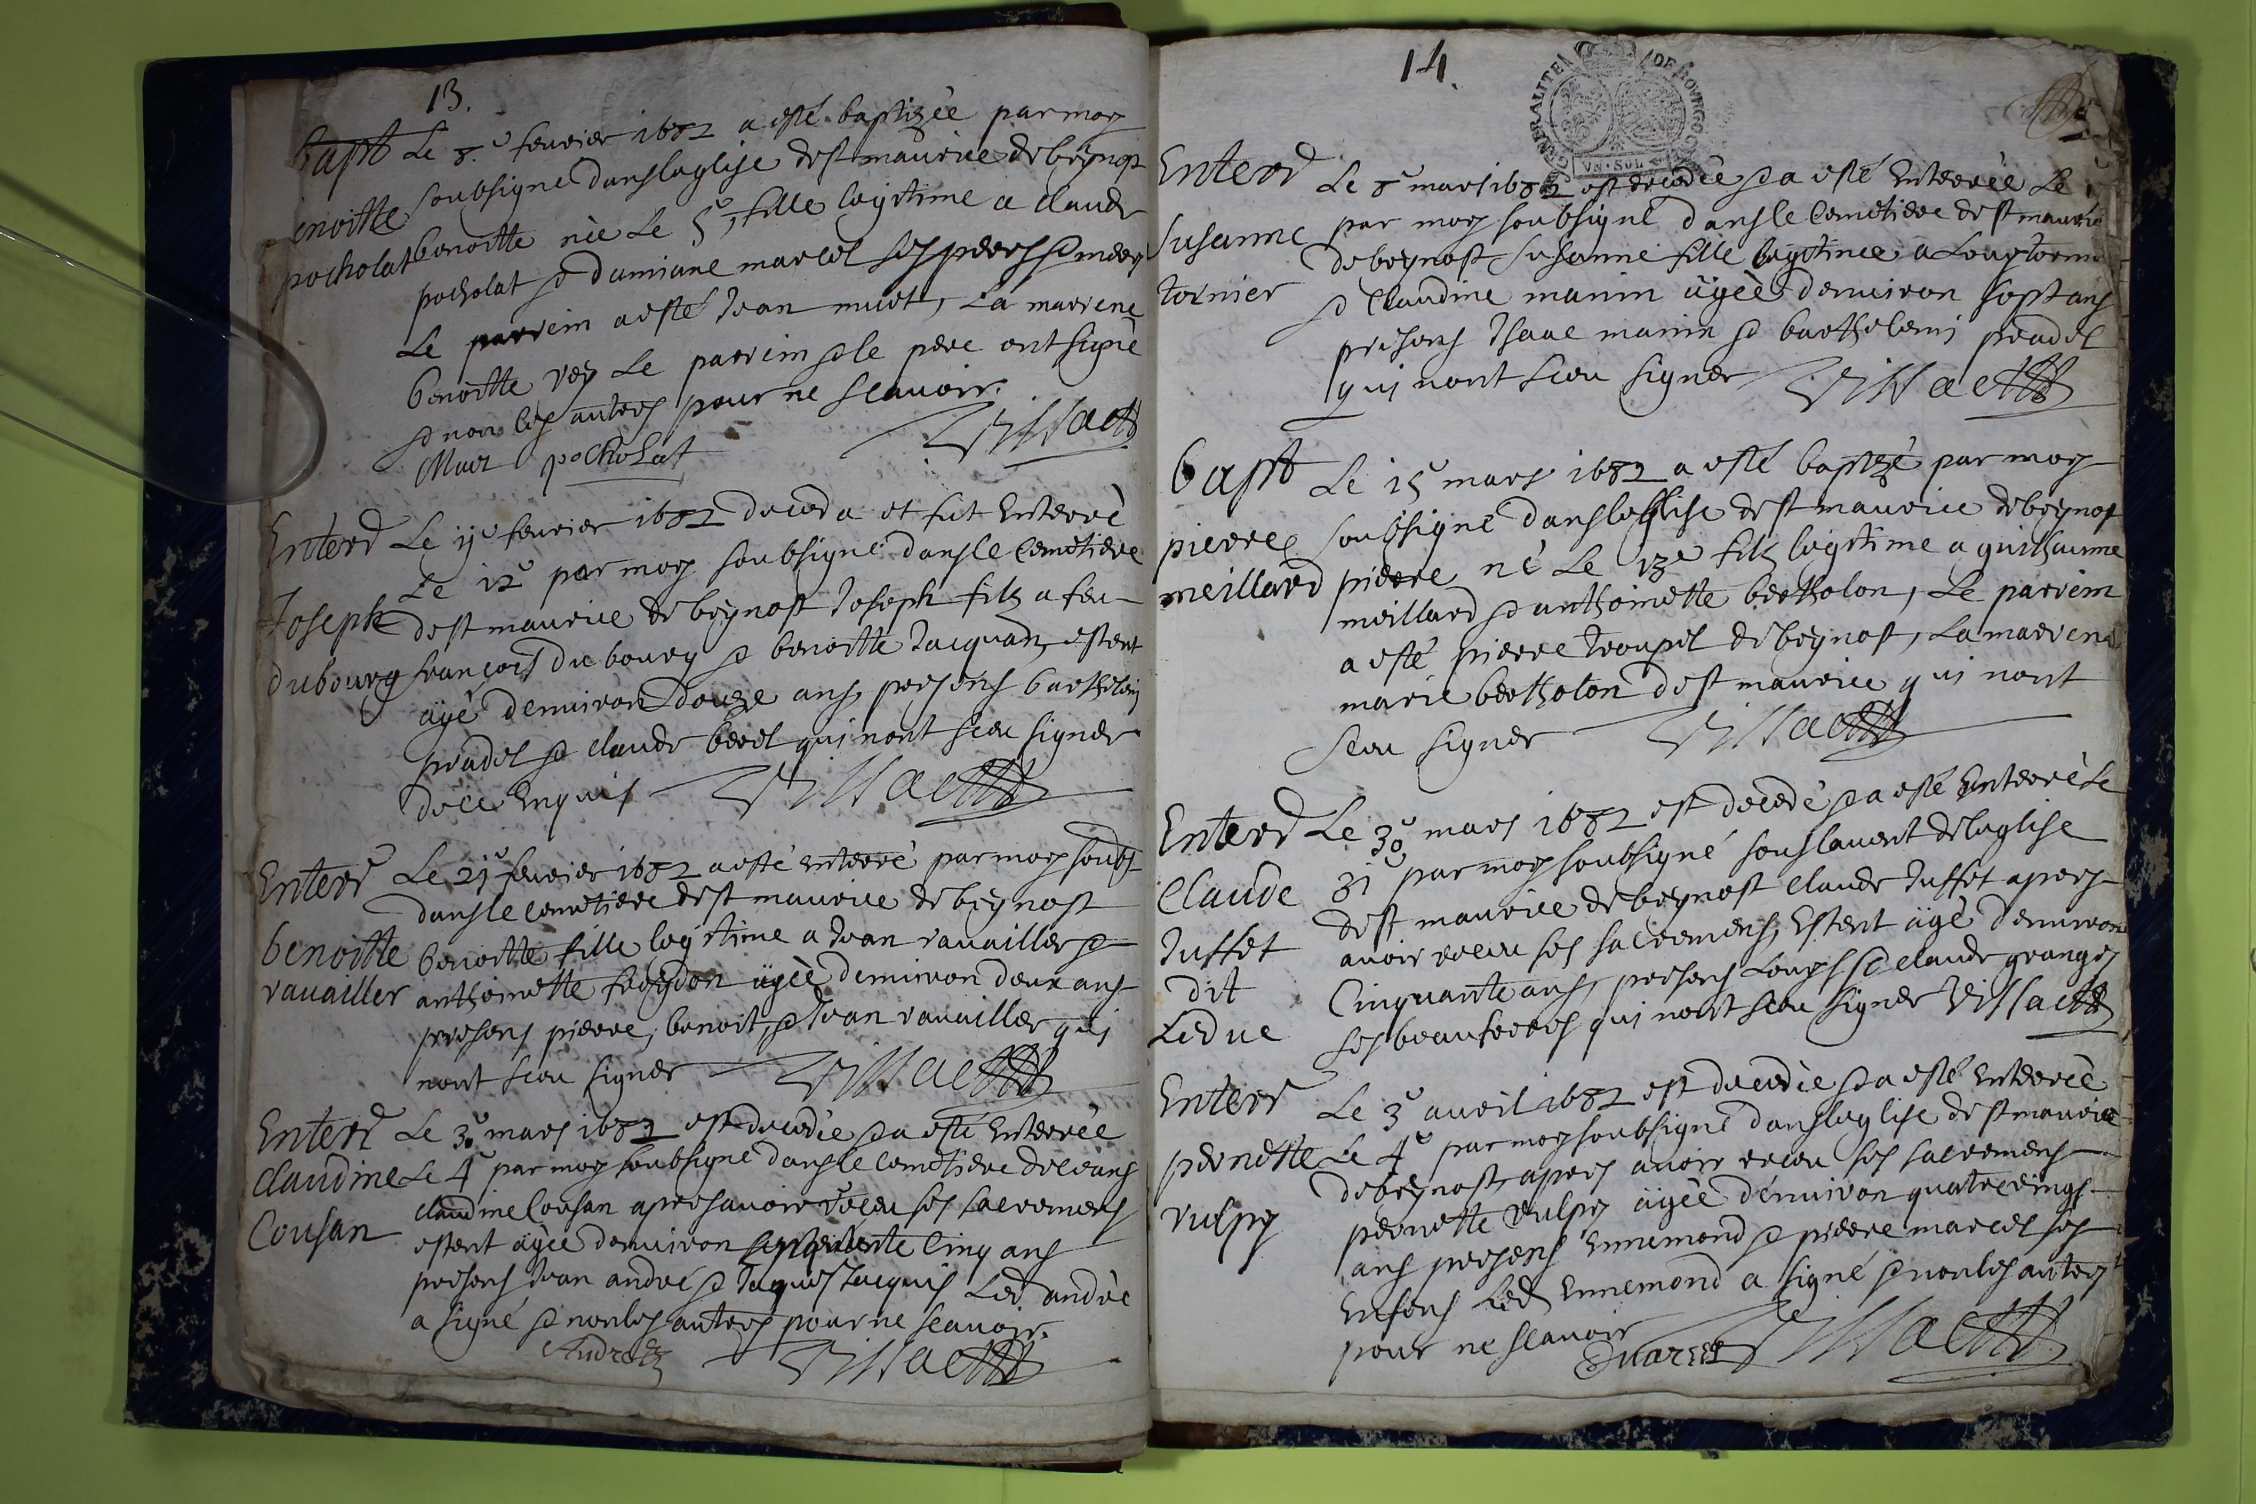 13.
Bapt
benoitte
pocholat
Le 8e feurier 1682 a esté baptizée par moy
soubsigné dans leglise de st maurice de beynost
benoitte née Le 5e, fille legitime a claude
pocholat & damiane marcel ses peere & mere
Le parrein a esté Jean muet, La marrene
benoitte rey Le parrein & le pere ont signé
& non les autres pour ne scauoir.
Muet pocholat
Enterrt
Joseph
dubourg
Le 11e feurier 1682 deceda et fut Enterré
Le 12e par moy soubsigné dans le cemetiere
de st maurice de beynost Joseph filz a feu
françois du bourg & benoitte Jacquan, estent
agé denuiron Douze ans, presens barthelemi
pradel & claude berel qui nont sceu signer
de ce Enquis
Enterrt
benoitte
rauailler
Le 21e feurier 1682 a esté enterré par moy soubs.
dans le cemetiere de st maurice de beynost
benoitte fille legitime a Jean rauailler &
anthoinette agée denuiron deux ans
presens pierre, benoit, & Jean rauailler qui
nont sceu signer
Enterrt
claudine
Cousan
Le 3e mars 1682 est decedée & a esté Enterrée
Le 4e par moy soubsigné dans le cemetiere de ceans
claudine Cousan apres auoir receu ses sacremens
estent agée denuiron Cinq ans
presens Jean andré & Jaques Jacquis Led. andré
a signé & non les autres pour ne scauoir.
14.
GENERALITE DE BOVRGOGNE
VN SOL
Enterrt
Susanne
tornier
Le 8e mars 1682 est decedée & a esté Enterrée Le
par moy soubsigné dans le Cemetiere de st maurice
de beynost Susanne fille legitime a Louy tornier
& Claudine manin agée denuiron sept ans
presens Isaac manin & barthelemi pradel
qui nont sceu signer
Bapt
pierre
meillard
Le 15e mars 1682 a esté baptizé par moy
soubsigné dans leglise de st maurice de beynost
pierre né Le 13e filz legitime a guillaume
meillard & anthoinette bertholon, Le parrein
a esté pierre troupel de beynost, La marrene
marie bertholon de st maurice qui nont
sceu signer
Enterrt
Claude
Juffet
dit
Leduc
Le 30e mars 1682 est decedé & a esté Enterré Le
31e par moy soubsigné sous lauent de leglise
de st maurice de beynost claude Juffet apres
auoir receu ses sacremens, Estent agé denuiron
Cinquante ans, presens Louys & claude granges
ses beaufreres qui nont sceu signer
Enterrt
pernette
vulpey
Le 3e auril 1682 est decedée & a esté Enterrée
Le 4e par moy soubsigné dans leglise de st maurice
de beynost, apres auoir receu ses sacremens
pernette vulpey agée denuiron quatrevingt
ans presens Ennemond & pierre marcel ses
Enfens Led. Ennemond a signé & non les autres
pour ne scauoir